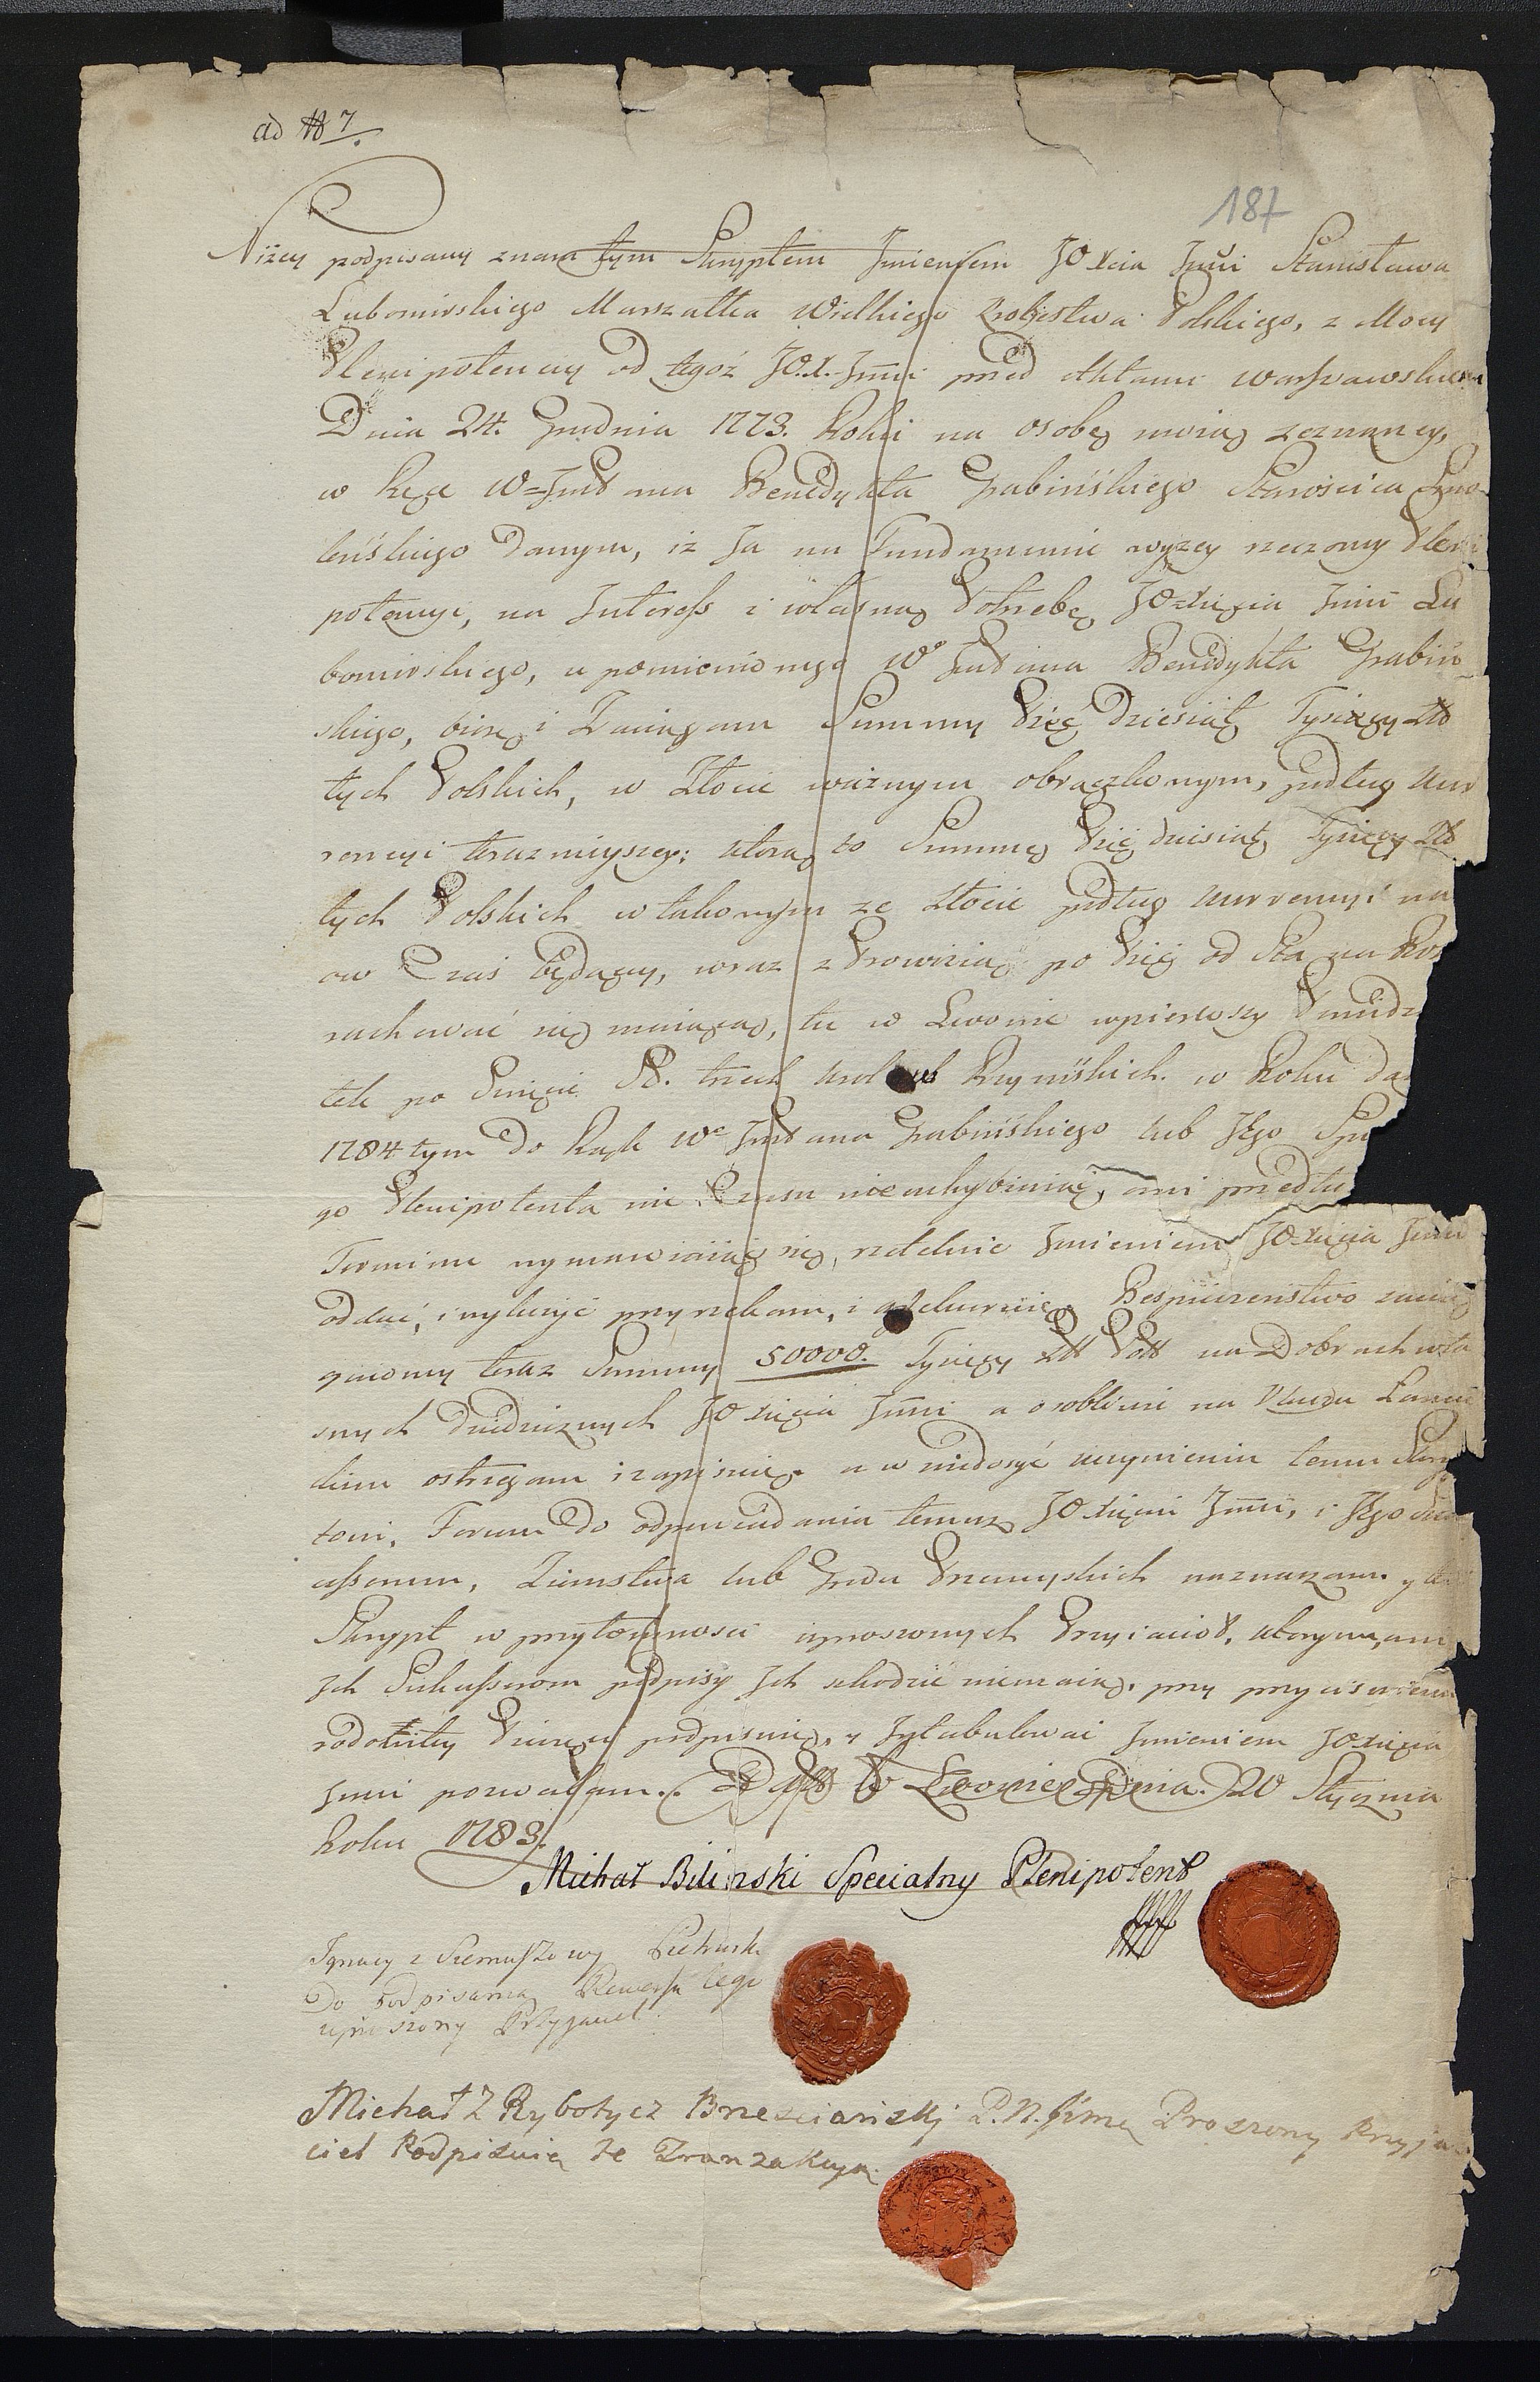 ad № 7.
187
Niżey podpisany znam tym Skryptem Imieniem JO Xcia Jmci Stanisława
Lubomirskiego Marszałka Wielkiego Krolestwa Polskiego, z Mocy
Plenipotencyi od tegoż JO.X. Jmci przed Aktami warszawskiemi
Dnia 24. Grudnia 1773. Roku na osobę moią zeznaney,
w Ręce W Jmć Pana Benedykta Grabińskiego Starościca Smo
leńskiego danym, iż Ja na Fundamencie wyzey rzeczony Pleni
potencyi, na Interess i własną Potrzebę JO Xięcia Jmci Lu
bomirskiego, u pomienionego Wo Jmć Pana Benedykta Grabiń
skiego, biorę i Zaciągam Summy Pięć Dziesiąt Tysięcy Zło
tych Polskich, w Złocie ważnym obrączkowym, podług kur
rencyi teraznieyszey; ktorą to Summę Pięć dziesiąt Tysięcy Zło
tych Polskich w takowym ze Złocie podług kurrencyi na
ow Czas będący, wraz z Prowizią po Pięć od Sta na Rok
rachować się maiącą, tu w Lwowie w pierwszy Poniedz
tek po Święcie SS. trzech Krolach Rzymskich w Roku da
1784 tym do Rąk Wo Jmć Pana Grabińskiego lub Jego Spe
go Plenipotenta nie Czasu nieuchybiaiąc, ani przedłu
Terminu wymawiaiąc się, rzetelnie Imieniem JO Xięcia Jmci
oddać, i wyliczyć przyrzekam, i assekuruię. Bespieczenstwo zacią
gnioney teraz Summy 50000. Tysięcy Zł Pol na Dobrach wła
snych dziedzicznych JO Xięcia Jmci a osobliwie na Kluczu Łancu
ckim ostrzegam i zapisuię. a w niedosyć uczynieniu temu Skryp
towi, Forum do odpowiadania temuz JO Xięciu Jmci, i Jego Suk
cessorom, Ziemstwa lub Grodu Przemyskich naznaczam. y ten
Skrypt w przytomnosci uproszonych Przyiacioł, ktorym, ani
Ich Sukcessorom podpisy Ich szkodzić niemaią, przy przycisnieniu
rodowitey Pieczęci podpisuię, y Intabulować Imieniem JO Xięcia
Jmci pozwalam. Datt w Lwowie Dnia 20 Stycznia
Roku 1783.
Michał Biliński Specialny Plenipotent
Ignacy z Siemuszowy Pietruski
Do Podpisania Rewersu tego
uproszony Przyjaciel
Michał Z Rybotycz Brzesciański P. N. Jmę Proszony Przyja
ciel Podpisuię te Tranzakcyą